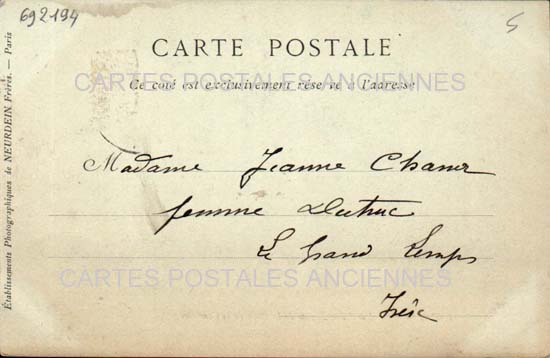 692194
5
CARTE POSTALE
CARTES POSTALES ANCIENNES
Ce côté est exclusivement réservé à l'adresse
Madame Jeanne Chaner
femme Dutruc
Le Grand Lemps
CARTES POSTALES ANCIENNES
Isère
Établissements Photographiques de NEURDEIN Frères. — Paris